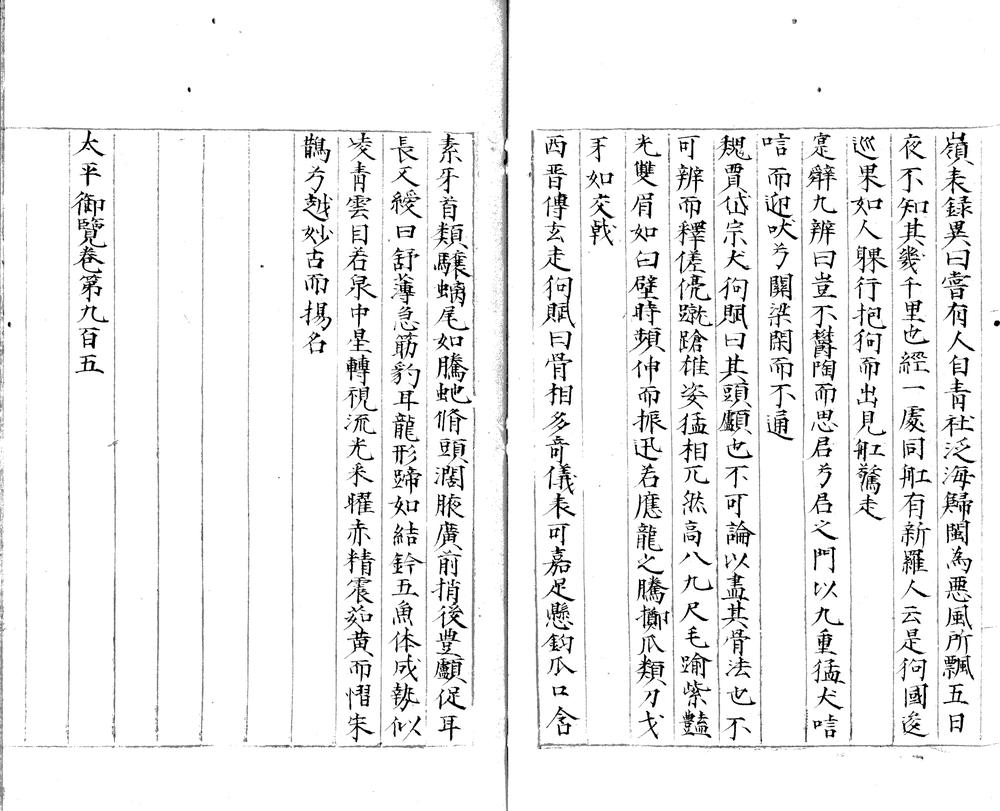 嶺表録異曰嘗有人自青社泛海歸閩為悪風所飄五日
夜不知其幾千里也經一處同舡有新羅人云是狗國逡
巡果如人躶行抱狗而出見舡驚走
楚辭九辨曰豈不欝陶而思君兮君之門以九重猛犬唁
唁而迎吠兮關梁閇而不通
魏賈岱宗犬狗賦曰其頭顱也不可論以盡其骨法也不
可辨而釋傞俛蹴蹌雄姿猛相兀然高八九尺毛踰紫豔
光雙眉如白壁時頻伸而振迅若應龍之騰擲爪類刀戈
牙如交戟
西晋傅玄走狗賦曰骨相多奇儀表可嘉足懸鈎爪口含
素牙首類驤螭尾如騰虵脩頭濶腋廣前捎後豊顱促耳
長叉緩曰舒薄急筋豹耳龍形蹄如結鈴五魚体成勢似
凌青雲目若泉中星轉視流光釆曜赤精震茹黄而慴宋
鵲兮越妙古而揚名
太平御覽卷第九百五